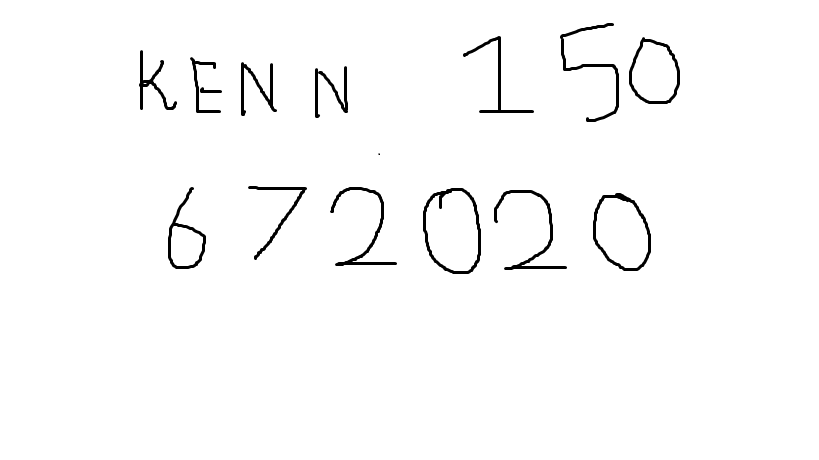 KENN 150
672020